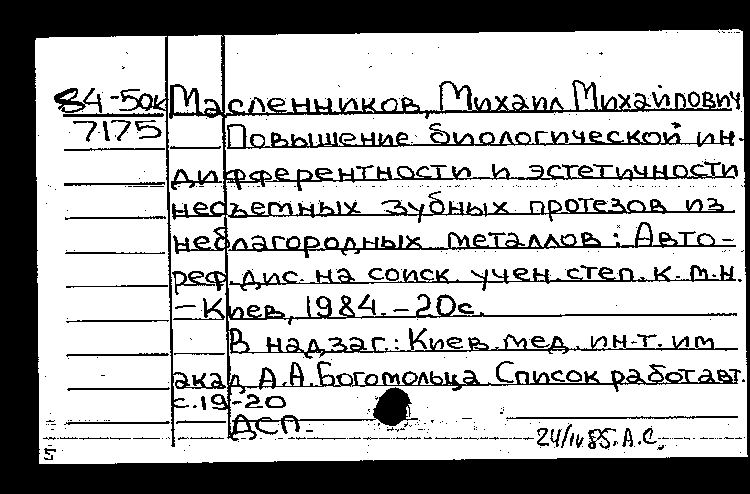 84-50к Масленников, Михаил Михайлович
7175 Повышение биологической ин-
дифферентности и эстетичности
несъемных зубных протезов из
неблагородных металлов: Авто-
реф. дис. на соиск. учен. степ. к.м.н.
-Киев, 1984.-20с.
В надзаг.: Киев. мед. ин-т. им
акад А.А.Богомольца Список работ авт.
с.19-20
ДСП.
24/IV 85. А.С.
5